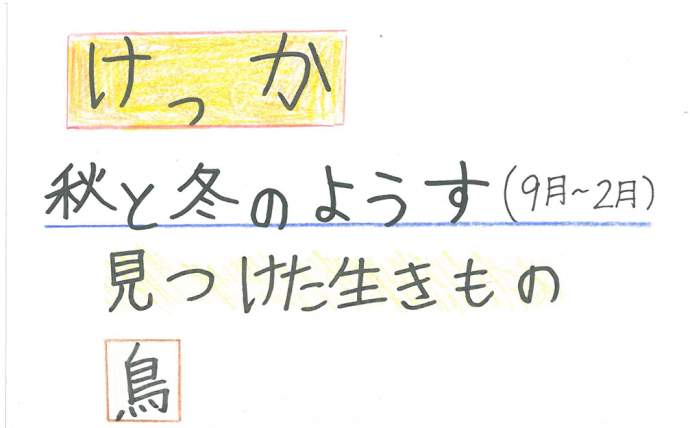 けっか
秋と冬のようす(9月~2月)
見つけた生きもの
鳥